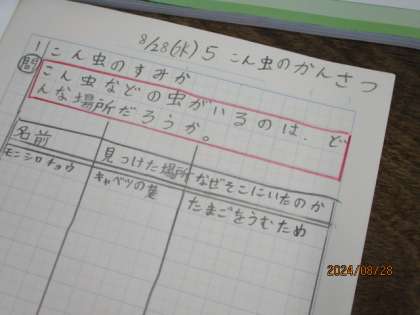 8/28(水) 5 こん虫のかんさつ
1 こん虫のすみか
問 こん虫などの虫がいるのは、ど
んな場所だろうか。
名前 見つけた場所 なぜそこにいたのか
モンシロチョウ キャベツの葉 たまごをうむため
2024/08/28